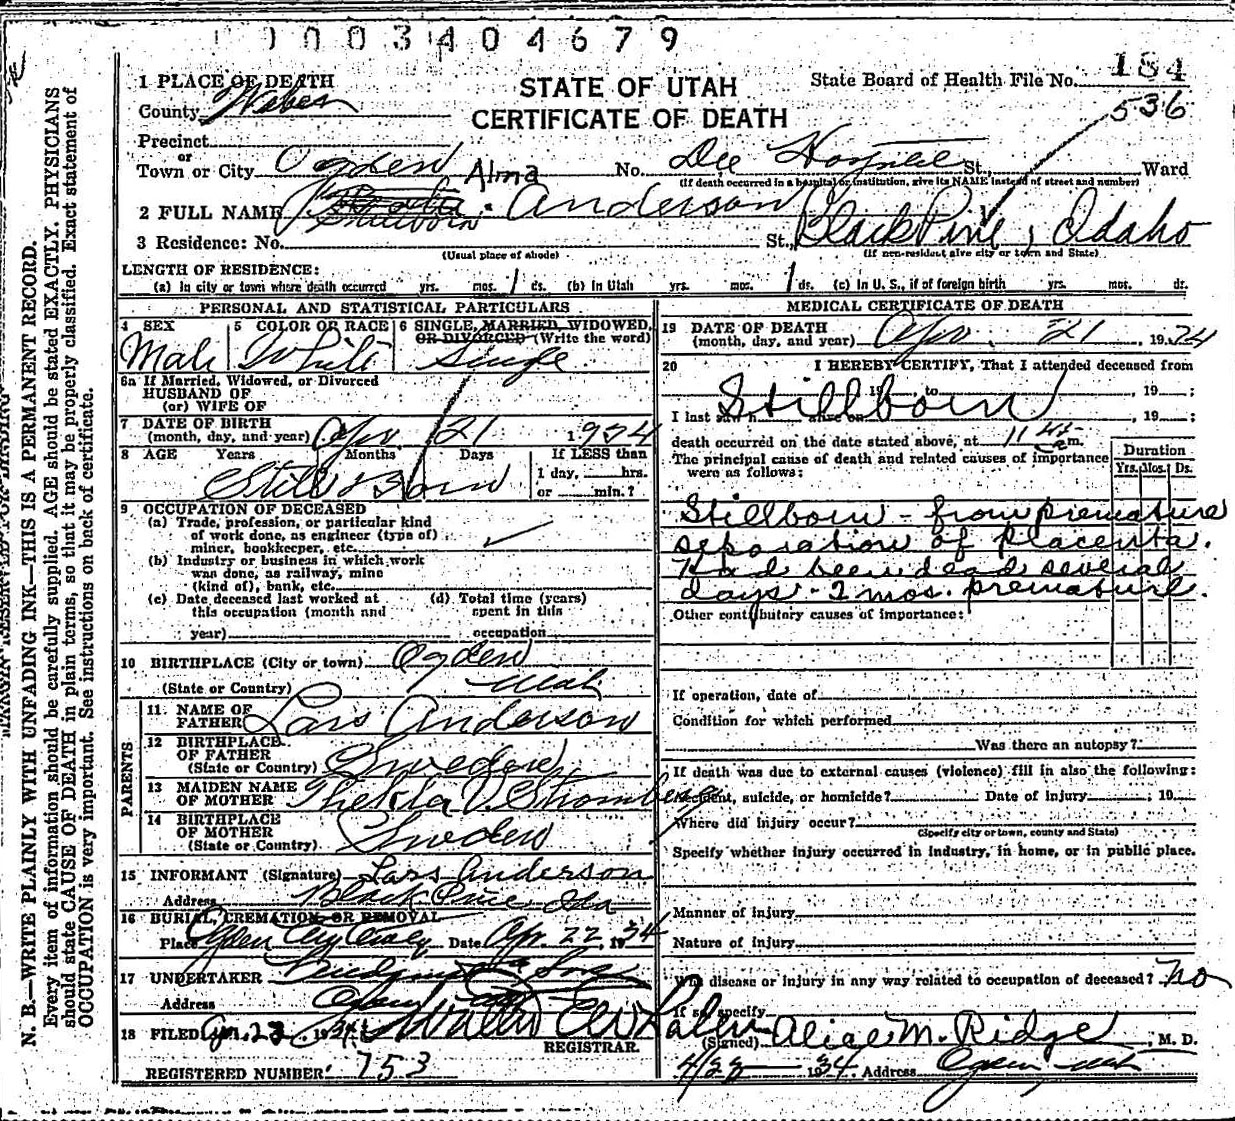 1003404679
184
STATE OF UTAH
CERTIFICATE OF DEATH
State Board of Health File No.
536
1 PLACE OF DEATH
County Weber
Precinct
or
Town or City Ogden No. Dee Hospital St. Ward
(If death occurred in a hospital or institution, give its NAME instead of street and number)
Alma
2 FULL NAME Anderson
Stillborn
3 Residence: No. St., Black Pine, Idaho
(Usual place of abode) (If non-resident give city or town and State)
LENGTH OF RESIDENCE:
(a) In city or town where death occurred yrs. mos. 1 ds. (b) In Utah yrs. mos. 1 ds. (c) In U. S., if of foreign birth yrs. mos. ds.
PERSONAL AND STATISTICAL PARTICULARS
4 SEX 5 COLOR OR RACE 6 SINGLE, MARRIED, WIDOWED, OR DIVORCED (Write the word)
Male White Single
6a If Married, Widowed, or Divorced
HUSBAND OF
(or) WIFE OF
7 DATE OF BIRTH
(month, day, and year) Apr 21 1934
8 AGE Years Months Days If LESS than
1 day, hrs.
or min.?
Still Born
9 OCCUPATION OF DECEASED
(a) Trade, profession, or particular kind
of work done, as engineer (type of)
miner, bookkeeper, etc.
(b) Industry or business in which work
was done, as railway, mine
(kind of), bank, etc.
(c) Date deceased last worked at (d) Total time (years)
this occupation (month and spent in this
year) occupation
10 BIRTHPLACE (City or town) Ogden
(State or Country) Utah
PARENTS
11. NAME OF
FATHER Lars Anderson
12 BIRTHPLACE
OF FATHER
(State or Country) Sweden
13 MAIDEN NAME
OF MOTHER Thekla V. Stromberg
14 BIRTHPLACE
OF MOTHER
(State or Country) Sweden
15 INFORMANT (Signature) Lars Anderson
Address Black Pine, Ida
16 BURIAL, CREMATION, OR REMOVAL
Place Ogden City Date Apr. 22 1934
17 UNDERTAKER & Sons
Address Ogden
18 FILED Apr. 23 1934
REGISTRAR.
REGISTERED NUMBER: 753
MEDICAL CERTIFICATE OF DEATH
19 DATE OF DEATH
(month, day, and year) Apr. 21, 1934
20 I HEREBY CERTIFY, That I attended deceased from
19 to , 19 ;
Stillborn
I last saw h alive on , 19 ;
death occurred on the date stated above, at 11 45 a m.
The principal cause of death and related causes of importance
were as follows:
Duration
Yrs. Mos. Ds.
Stillborn - from premature
separation of placenta.
Had been dead several
days - 2 mos. premature.
Other contributory causes of importance:
If operation, date of
Condition for which performed
Was there an autopsy?
If death was due to external causes (violence) fill in also the following:
Accident, suicide, or homicide? Date of injury , 19
Where did injury occur?
(Specify city or town, county and State)
Specify whether injury occurred in industry, in home, or in public place.
Manner of injury
Nature of injury
Was disease or injury in any way related to occupation of deceased? No
If so, specify
(Signed) Alice M. Ridge, M. D.
4/23 1934 Address Ogden, Utah
N. B.—WRITE PLAINLY WITH UNFADING INK—THIS IS A PERMANENT RECORD.
Every item of information should be carefully supplied. AGE should be stated EXACTLY. PHYSICIANS
should state CAUSE OF DEATH in plain terms, so that it may be properly classified. Exact statement of
OCCUPATION is very important. See instructions on back of certificate.